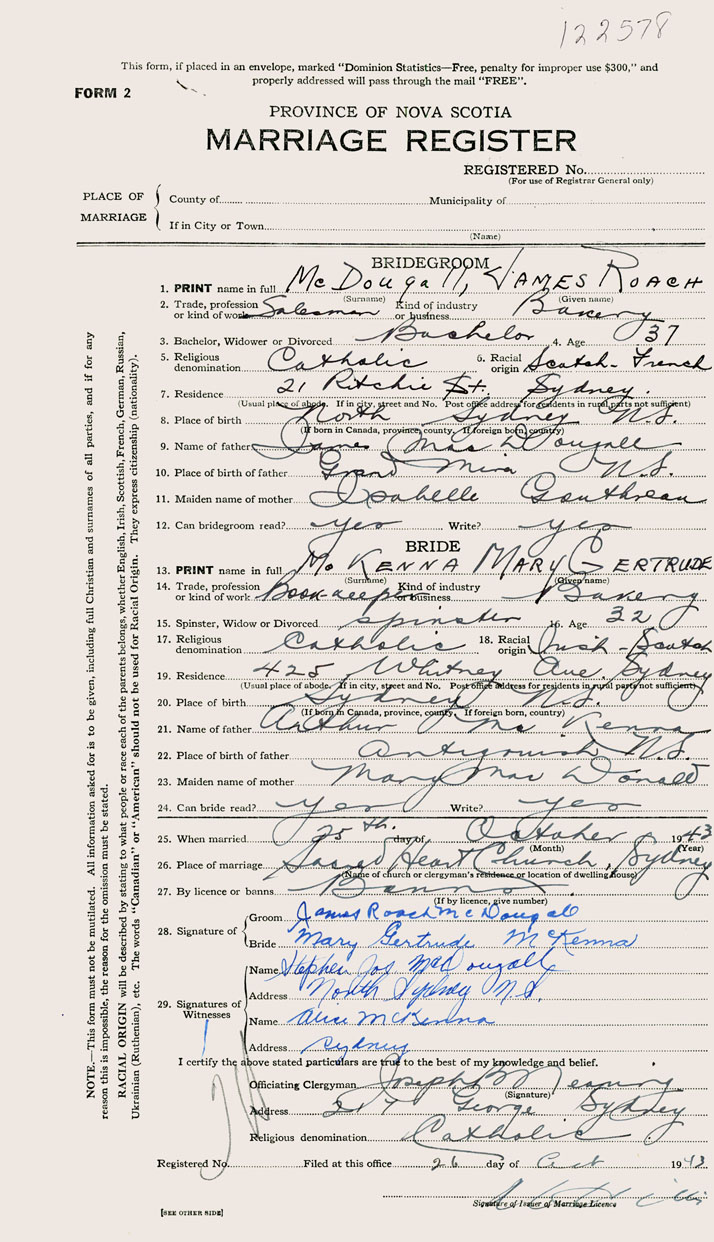 122578
This form, if placed in an envelope, marked "Dominion Statistics—Free, penalty for improper use $300," and
properly addressed will pass through the mail "FREE".
FORM 2
PROVINCE OF NOVA SCOTIA
MARRIAGE REGISTER
REGISTERED No.
(For use of Registrar General only)
PLACE OF MARRIAGE
County of Municipality of
If in City or Town
(Name)
BRIDEGROOM
1. PRINT name in full McDougall, JAMES ROACH
(Surname) (Given name)
2. Trade, profession or kind of work Salesman Kind of industry or business Bakery
3. Bachelor, Widower or Divorced Bachelor 4. Age 37
5. Religious denomination Catholic 6. Racial origin Scotch-French
7. Residence 21 Ritchie St. Sydney.
(Usual place of abode. If in city, street and No. Post office address for residents in rural parts not sufficient)
8. Place of birth North Sydney N.S.
(If born in Canada, province, county. If foreign born, country)
9. Name of father James MacDougall
10. Place of birth of father Grand Mira N.S.
11. Maiden name of mother Isabelle Gouthreau
12. Can bridegroom read? yes Write? yes
BRIDE
13. PRINT name in full McKENNA MARY GERTRUDE
(Surname) (Given name)
14. Trade, profession or kind of work Bookkeeper Kind of industry or business Bakery
15. Spinster, Widow or Divorced Spinster 16. Age 32
17. Religious denomination Catholic 18. Racial origin Irish-Scotch
19. Residence 425 Whitney Ave Sydney
(Usual place of abode. If in city, street and No. Post office address for residents in rural parts not sufficient)
20. Place of birth Sydney N.S.
(If born in Canada, province, county. If foreign born, country)
21. Name of father Arthur McKenna
22. Place of birth of father Antigonish N.S.
23. Maiden name of mother Mary MacDonald
24. Can bride read? yes Write? yes
25. When married 25th. day of October 1943
(Month) (Year)
26. Place of marriage Sacred Heart Church, Sydney
(Name of church or clergyman's residence or location of dwelling house)
27. By licence or banns Banns
(If by licence, give number)
28. Signature of
Groom James Roach McDougall
Bride Mary Gertrude McKenna
29. Signatures of Witnesses
Name Stephen Jos MacDougall
Address North Sydney N.S.
Name Alice McKenna
Address Sydney
I certify the above stated particulars are true to the best of my knowledge and belief.
Officiating Clergyman Joseph
(Signature)
Address 217 George Sydney
Religious denomination Catholic
Registered No. Filed at this office 26 day of Oct 1943
Signature of Issuer of Marriage Licence
[SEE OTHER SIDE]
NOTE.—This form must not be mutilated. All information asked for is to be given, including full Christian and surnames of all parties, and if for any
reason this is impossible, the reason for the omission must be stated.
RACIAL ORIGIN will be described by stating to what people or race each of the parents belongs, whether English, Irish, Scottish, French, German, Russian,
Ukrainian (Ruthenian), etc. The words "Canadian" or "American" should not be used for Racial Origin. They express citizenship (nationality).